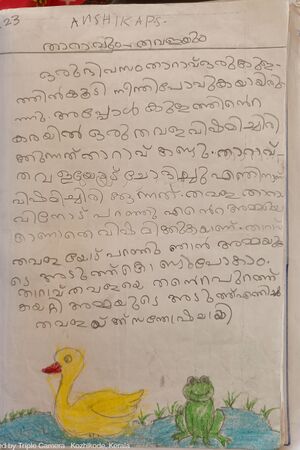 23
ANSHIKA P.S.
താറാവും തവളയും
ഒരു ദിവസം താറാവ് ഒരു കുള
ത്തിൽ കൂടി നീന്തി പോവുകയായിരു
ന്നു. അപ്പോൾ കുളത്തിന്റെ
കരയിൽ ഒരു തവള വിഷമിച്ചിരി
ക്കുന്നത് താറാവ് കണ്ടു. താറാവ്
തവളയോട് ചോദിച്ചു എന്തിനാ
വിഷമിച്ചിരിക്കുന്നത്. തവള താറാ
വിനോട് പറഞ്ഞു എന്റെ അമ്മയെ
കാണാതെ വിഷമിക്കുകയാണ്. താറാവ്
തവളയോട് പറഞ്ഞു ഞാൻ അമ്മയു
ടെ അടുത്ത് കൊണ്ടുപോകാം.
താറാവ് തവളയെ തന്റെ പുറത്ത്
കയറ്റി അമ്മയുടെ അടുത്ത് എത്തിച്ചു
തവളയ്ക്ക് സന്തോഷമായി
ed by Triple Camera Kozhikode, Kerala